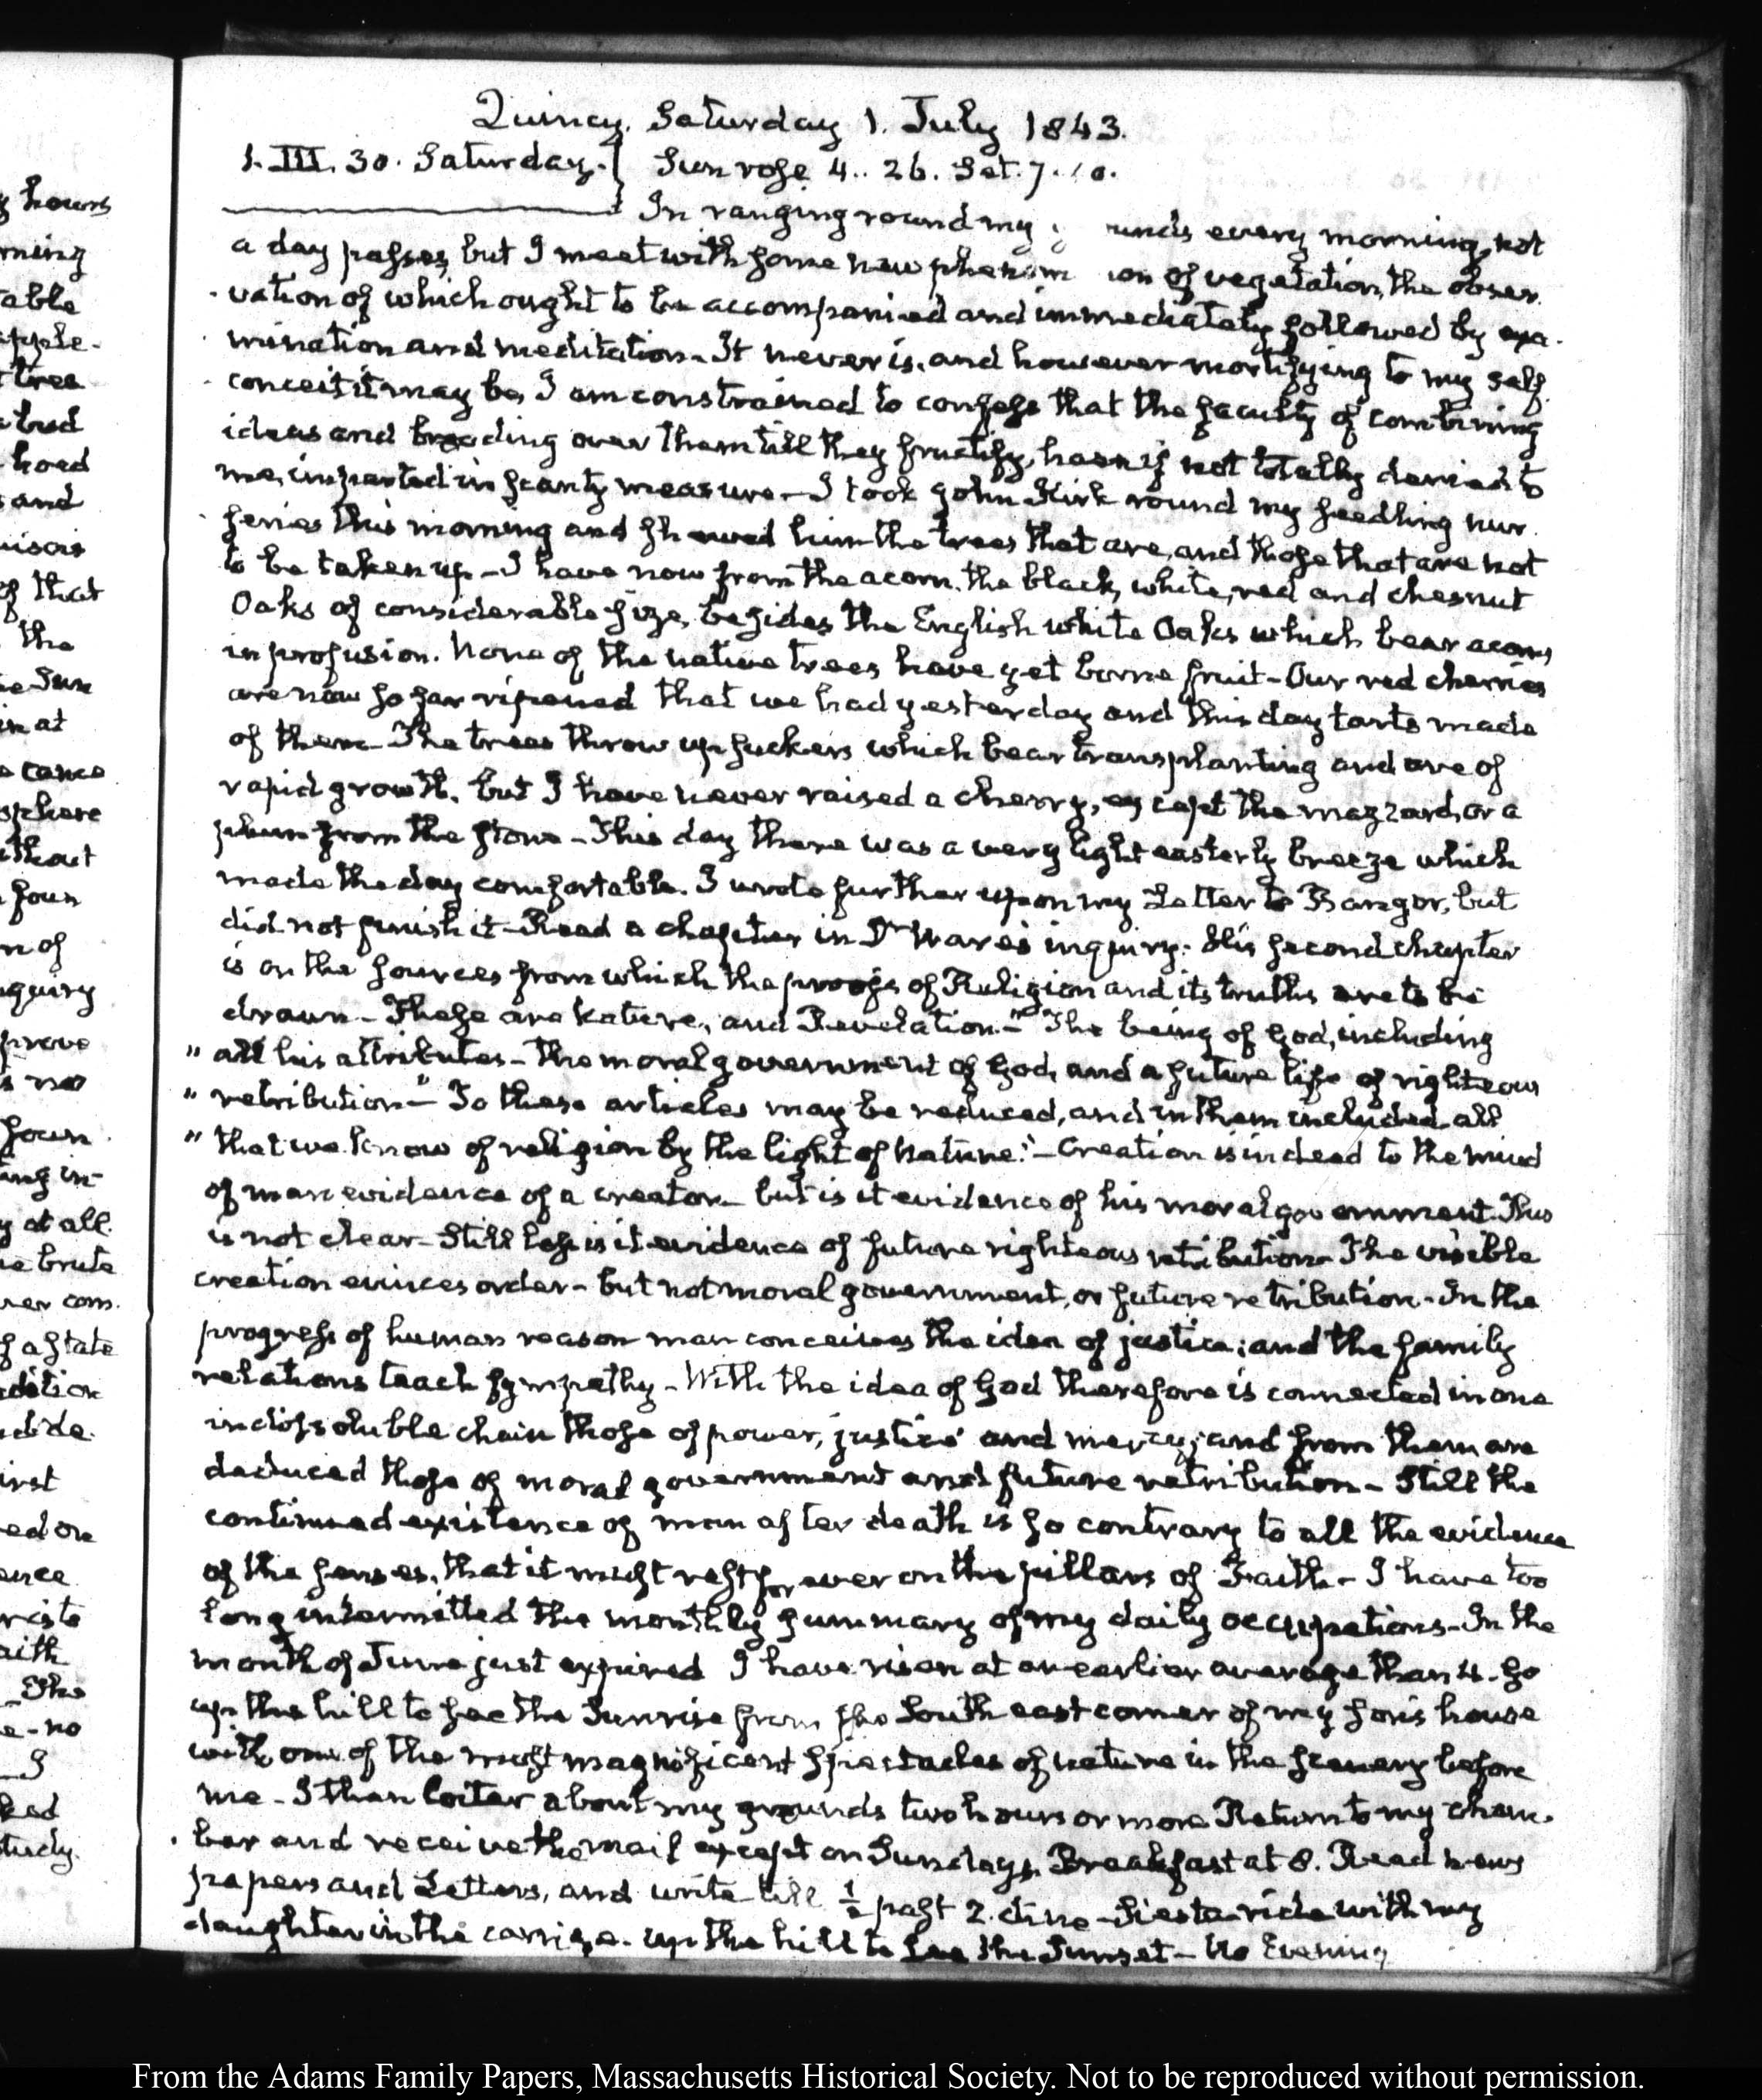 Quincy. Saturday 1. July 1843.
1. III. 30. Saturday. Sun rose 4.. 26. Set. 7. 40.
In ranging round my unds every morning, not
a day passes, but I meet with some new phenom on of vegetation, the obser-
vation of which ought to be accompanied and immediately followed by exa-
mination and meditation. It never is, and however mortifying to my self
conceit it may be, I am constrained to confess that the faculty of combining
ideas and brooding over them till they fructify, has if not totally denied to
me, imparted in scanty measure - I took John Kirk round my seedling nur-
series this morning and shewed him the trees that are, and those that are not
to be taken up - I have now from the acorn, the black, white, red and chesnut
Oaks of considerable size, besides the English white Oaks which bear acorns
in profusion. None of the native trees have yet borne fruit - Our red cherries
are now so far ripened that we had yesterday and this day tarts made
of them - The trees throw up suckers which bear transplanting and are of
rapid growth, but I have never raised a cherry, except the mazzard, or a
plum from the stone - This day there was a very light easterly breeze which
made the day comfortable. I wrote further upon my Letter to Bangor, but
did not finish it - Read a chapter in Dr Ware's inquiry. His second chapter
is on the sources from which the proofs of Religion and its truths are to be
drawn - These are Nature, and Revelation - "The being of God, including
" all his attributes - the moral government of God, and a future life of righteous
" retribution" - To these articles may be reduced, and in them included all
" that we know of religion by the light of Nature." - Creation is indeed to the mind
of man evidence of a creator - but is it evidence of his moral government. This
is not clear - Still less is it evidence of future righteous retribution - The visible
creation evinces order - but not moral government, or future retribution - In the
progress of human reason man conceives the idea of justice; and the family
relations teach sympathy - With the idea of God therefore is connected in one
indissoluble chain those of power, justice and mercy; and from them are
deduced those of moral government and future retribution - Still the
continued existence of man after death is so contrary to all the evidence
of the senses, that it must rest for ever on the pillars of Faith - I have too
long intermitted the monthly summary of my daily occupations - In the
month of June just expired I have risen at an earlier average than 4. Go
up the hill to see the Sunrise from the South east corner of my son's house
with one of the most magnificent spectacles of nature in the scenery before
me - I then loiter about my grounds two hours or more Return to my cham-
ber and receive the mail except on Sundays. Breakfast at 8. Read news
papers and Letters, and write till ½ past 2. dine - Siesta - ride with my
daughter in the carriage. up the hill to see the Sunset - No Evening
From the Adams Family Papers, Massachusetts Historical Society. Not to be reproduced without permission.